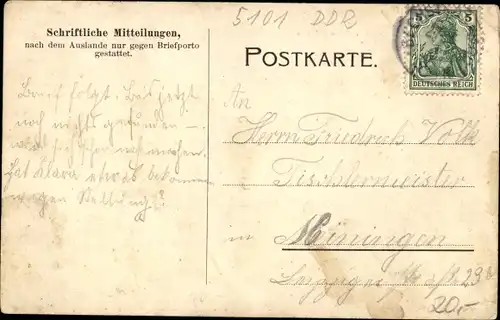 5101 DDR
Schriftliche Mitteilungen,
nach dem Auslande nur gegen Briefporto
gestattet.
POSTKARTE.
5 5
DEUTSCHES REICH
Brief folgt. Bis jetzt
noch nichts gefunden –
machen.
hat Klara etwas bekommen
wegen Stellung?!
An
Herrn Friedrich Volk
Tischlermeister
in Meiningen
Leipziger 23
20,-